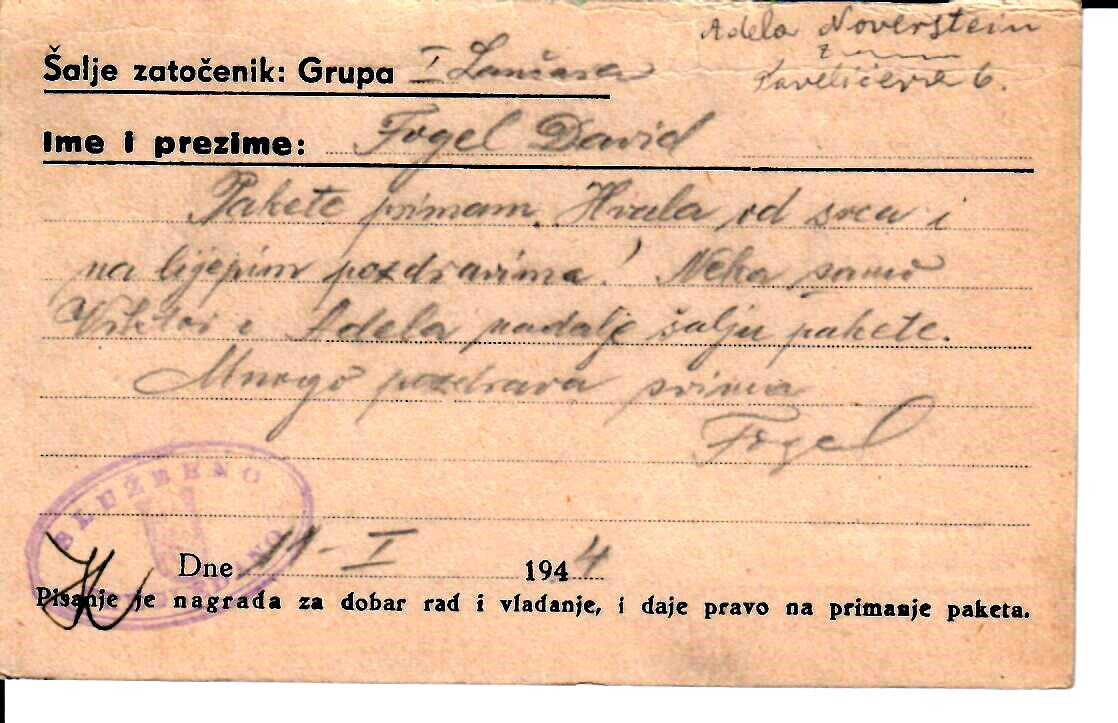 Adela Noverstein
Z
Pavelićeva 6.
Šalje zatočenik: Grupa I Lančara
Ime i prezime: Fogel David
Pakete primam. Hvala od srca i
na lijepim pozdravima! Neka samo
Viktor i Adela nadalje šalju pakete.
Mnogo pozdrava svima
Fogel
SLUŽBENO
Dne 11-I 1944
Pisanje je nagrada za dobar rad i vladanje, i daje pravo na primanje paketa.